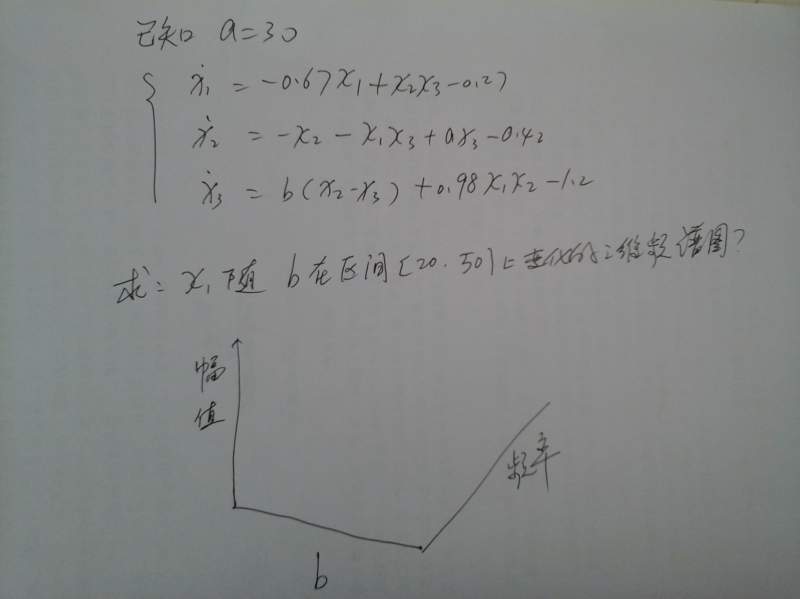 已知 a=30
ẋ₁ = -0.67x₁+x₂x₃-0.27
ẋ₂ = -x₂-x₁x₃+ax₃-0.42
ẋ₃ = b(x₂-x₃)+0.98x₁x₂-1.2
求: x₁随 b在区间[20.50]上变化的三维频谱图?
幅值
频率
b